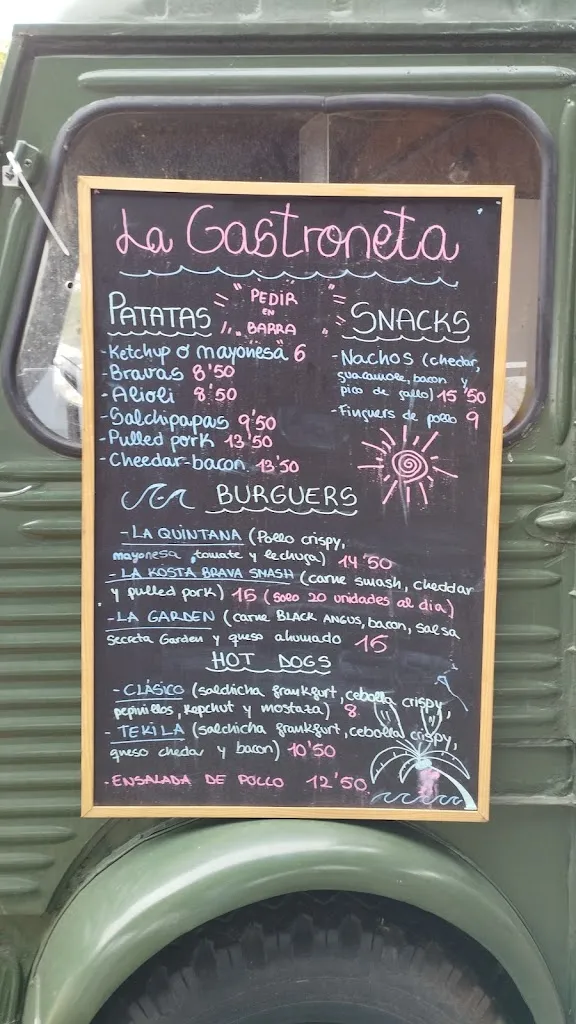 La Gastroneta
PATATAS
PEDIR
EN
BARRA
- Ketchup o mayonesa 6
- Bravas 8'50
- Alioli 8'50
- Salchipapas 9'50
- Pulled pork 13'50
- Cheedar-bacon 13'50
SNACKS
- Nachos (chedar,
guacamole, bacon y
pico de gallo) 15'50
- Finguers de pollo 9
BURGUERS
- LA QUINTANA (Pollo crispy,
mayonesa, tomate y lechuga) 14'50
- LA KOSTA BRAVA SMASH (carne smash, cheddar
y pulled pork) 15 (solo 20 unidades al dia)
- LA GARDEN (carne BLACK ANGUS, bacon, salsa
Secreta Garden y queso ahumado 15
HOT DOGS
- CLÁSICO (salchicha frankfurt, cebolla crispy,
pepinillos, Kepchut y mostaza) 8
- TEKILA (salchicha frankfurt, cebolla crispy,
queso chedar y bacon) 10'50
- ENSALADA DE POLLO 12'50